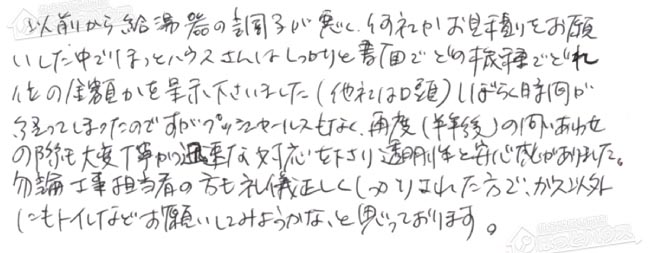 以前から給湯器の調子が悪く、何社かお見積りをお願
いした中でほっとハウスさんはしっかりと書面でどの機種でどれ
位の金額かを呈示下さいました（他社は口頭）しばらく時間が
経ってしまったのですがプッシュセールスもなく、再度（半年後）の問いあわせ
の際も大変丁寧かつ迅速な対応を下さり透明性と安心感がありました。
勿論工事担当者の方も礼儀正しくしっかりされた方で、ガス以外
にもトイレなどお願いしてみようかな、と思っております。